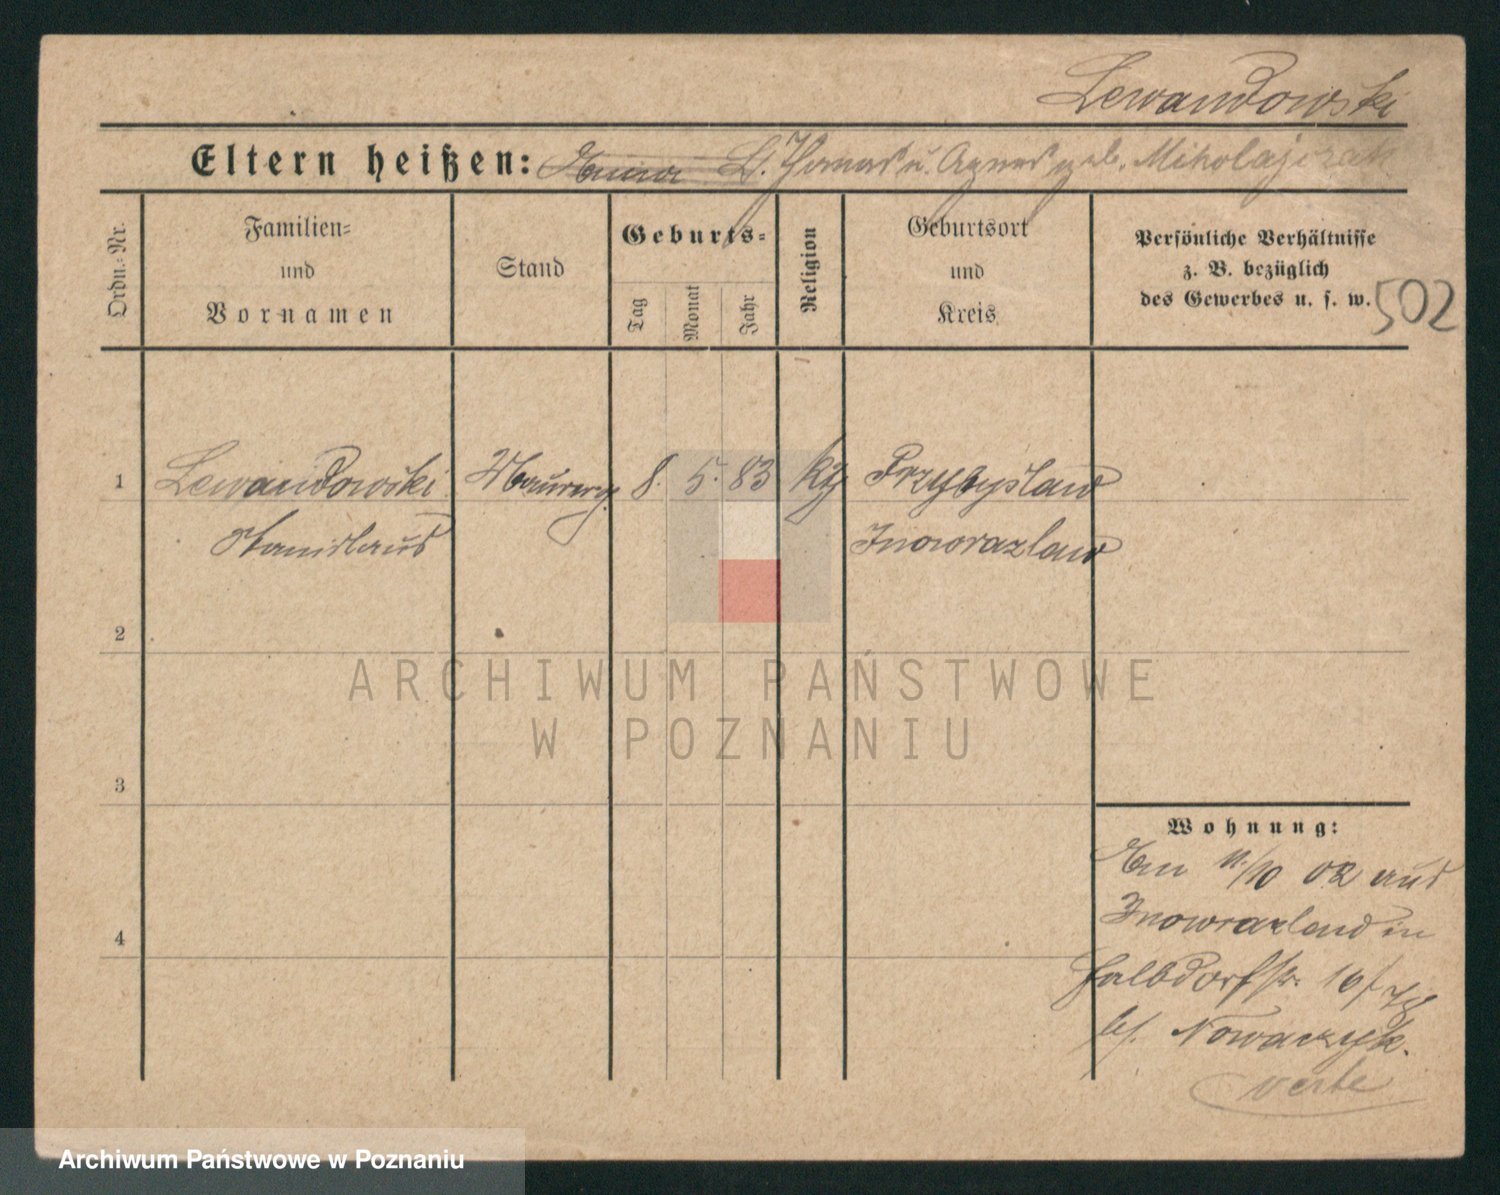 Lewandowski
Eltern heißen: L. Thomas u. Agnes geb. Mikolajczak
Ordn.-Nr.
Familien-
und
Vornamen
Stand
Geburts-
Tag
Monat
Jahr
Religion
Geburtsort
und
Kreis
Persönliche Verhältnisse
z. B. bezüglich
des Gewerbes u. s. w.
502
1 Lewandowski Maurerg. 8. 5. 83 Przybyslaw
Stanislaus Inowrazlaw
2
3
4
Wohnung:
Am 11/10 02 aus
Inowrazlaw in
Halbdorfstr. 16/
bei Nowaczyk.
verte
ARCHIWUM PAŃSTWOWE
W POZNANIU
Archiwum Państwowe w Poznaniu